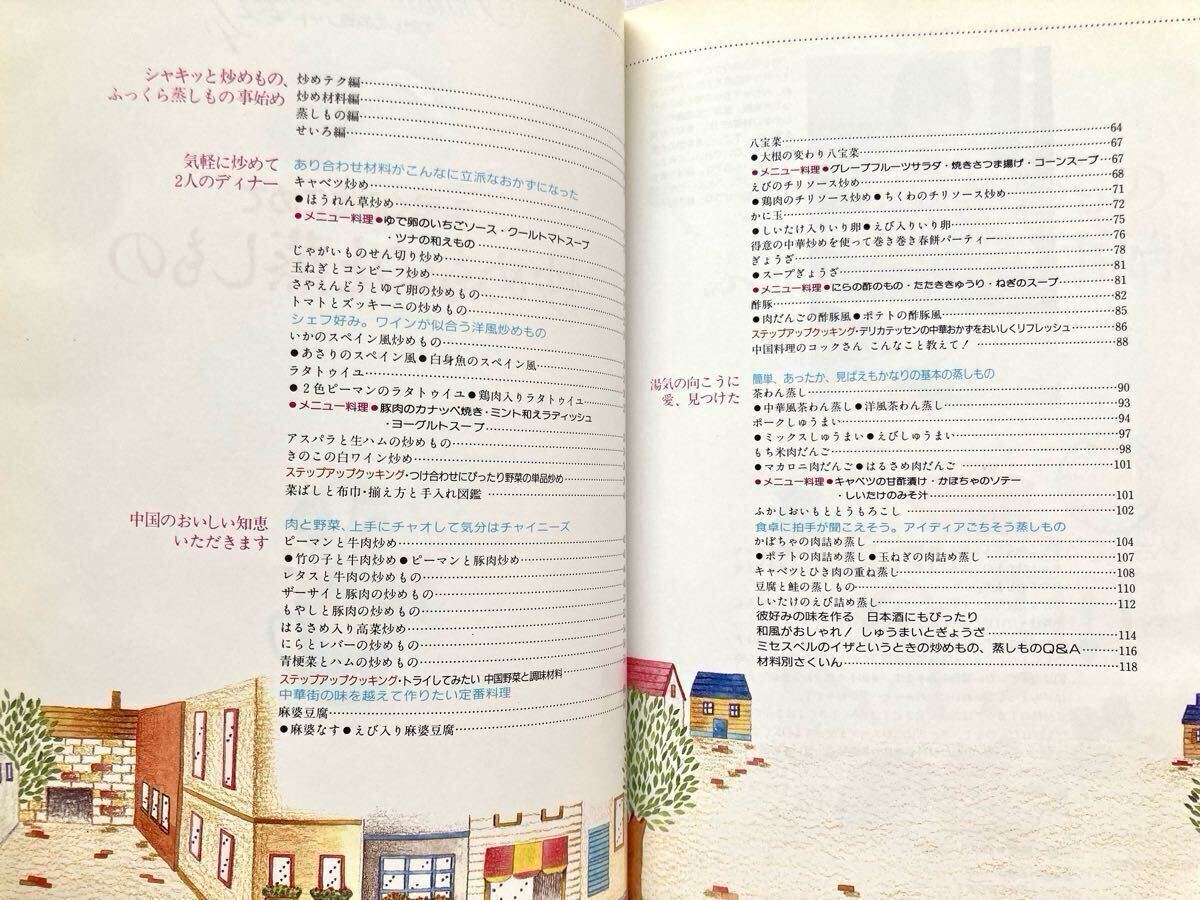 シャキッと炒めもの、
ふっくら蒸しもの事始め
炒めテク編
炒め材料編
蒸しもの編
せいろ編
気軽に炒めて
2人のディナー
あり合わせ材料がこんなに立派なおかずになった
キャベツ炒め
●ほうれん草炒め
●メニュー料理●ゆで卵のいちごソース・クールトマトスープ
・ツナの和えもの
じゃがいものせん切り炒め
玉ねぎとコンビーフ炒め
さやえんどうとゆで卵の炒めもの
トマトとズッキーニの炒めもの
シェフ好み。ワインが似合う洋風炒めもの
いかのスペイン風炒めもの
●あさりのスペイン風●白身魚のスペイン風
ラタトゥイユ
●2色ピーマンのラタトゥイユ●鶏肉入りラタトゥイユ
●メニュー料理●豚肉のカナッペ焼き・ミント和えラディッシュ
・ヨーグルトスープ
アスパラと生ハムの炒めもの
きのこの白ワイン炒め
ステップアップクッキング・つけ合わせにぴったり野菜の単品炒め
菜ばしと布巾・揃え方と手入れ図鑑
中国のおいしい知恵
いただきます
肉と野菜、上手にチャオして気分はチャイニーズ
ピーマンと牛肉炒め
●竹の子と牛肉炒め●ピーマンと豚肉炒め
レタスと牛肉の炒めもの
ザーサイと豚肉の炒めもの
もやしと豚肉の炒めもの
はるさめ入り高菜炒め
にらとレバーの炒めもの
青梗菜とハムの炒めもの
ステップアップクッキング・トライしてみたい 中国野菜と調味材料
中華街の味を越えて作りたい定番料理
麻婆豆腐
●麻婆なす●えび入り麻婆豆腐
八宝菜 64
●大根の変わり八宝菜 67
●メニュー料理●グレープフルーツサラダ・焼きさつま揚げ・コーンスープ 67
えびのチリソース炒め 68
●鶏肉のチリソース炒め●ちくわのチリソース炒め 71
かに玉 72
●しいたけ入りいり卵●えび入りいり卵 75
得意の中華炒めを使って巻き巻き春餅パーティー 76
ぎょうざ 78
●スープぎょうざ 81
●メニュー料理●にらの酢のもの・たたききゅうり・ねぎのスープ 81
酢豚 82
●肉だんごの酢豚風●ポテトの酢豚風 85
ステップアップクッキング・デリカテッセンの中華おかずをおいしくリフレッシュ 86
中国料理のコックさん こんなこと教えて! 88
湯気の向こうに
愛、見つけた
簡単、あったか、見ばえもかなりの基本の蒸しもの
茶わん蒸し 90
●中華風茶わん蒸し●洋風茶わん蒸し 93
ポークしゅうまい 94
●ミックスしゅうまい●えびしゅうまい 97
もち米肉だんご 98
●マカロニ肉だんご●はるさめ肉だんご 101
●メニュー料理●キャベツの甘酢漬け・かぼちゃのソテー
・しいたけのみそ汁 101
ふかしおいもととうもろこし 102
食卓に拍手が聞こえそう。アイディアごちそう蒸しもの
かぼちゃの肉詰め蒸し 104
●ポテトの肉詰め蒸し●玉ねぎの肉詰め蒸し 107
キャベツとひき肉の重ね蒸し 108
豆腐と鮭の蒸しもの 110
しいたけのえび詰め蒸し 112
彼好みの味を作る 日本酒にもぴったり
和風がおしゃれ! しゅうまいとぎょうざ 114
ミセスベルのイザというときの炒めもの、蒸しものQ&A 116
材料別さくいん 118